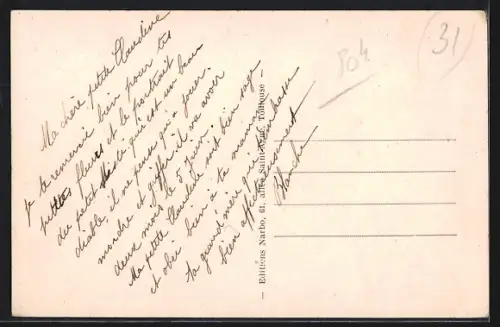 Ma chère petite Claudine
je te remercie bien pour tes
petites fleurs et le portrait
du petit qui est un beau
diable, il ne pense qu'à jouer
mordre et giffer il va avoir
deux mois le 5 juin.
Ma petite Claudine soit bien sage
et obéi bien à ta maman
ta grand'mère qui t'embrasse
bien affectueusement
Blanche
— Editions Narbo, 61, allée Saint- Toulouse —
804
(31)